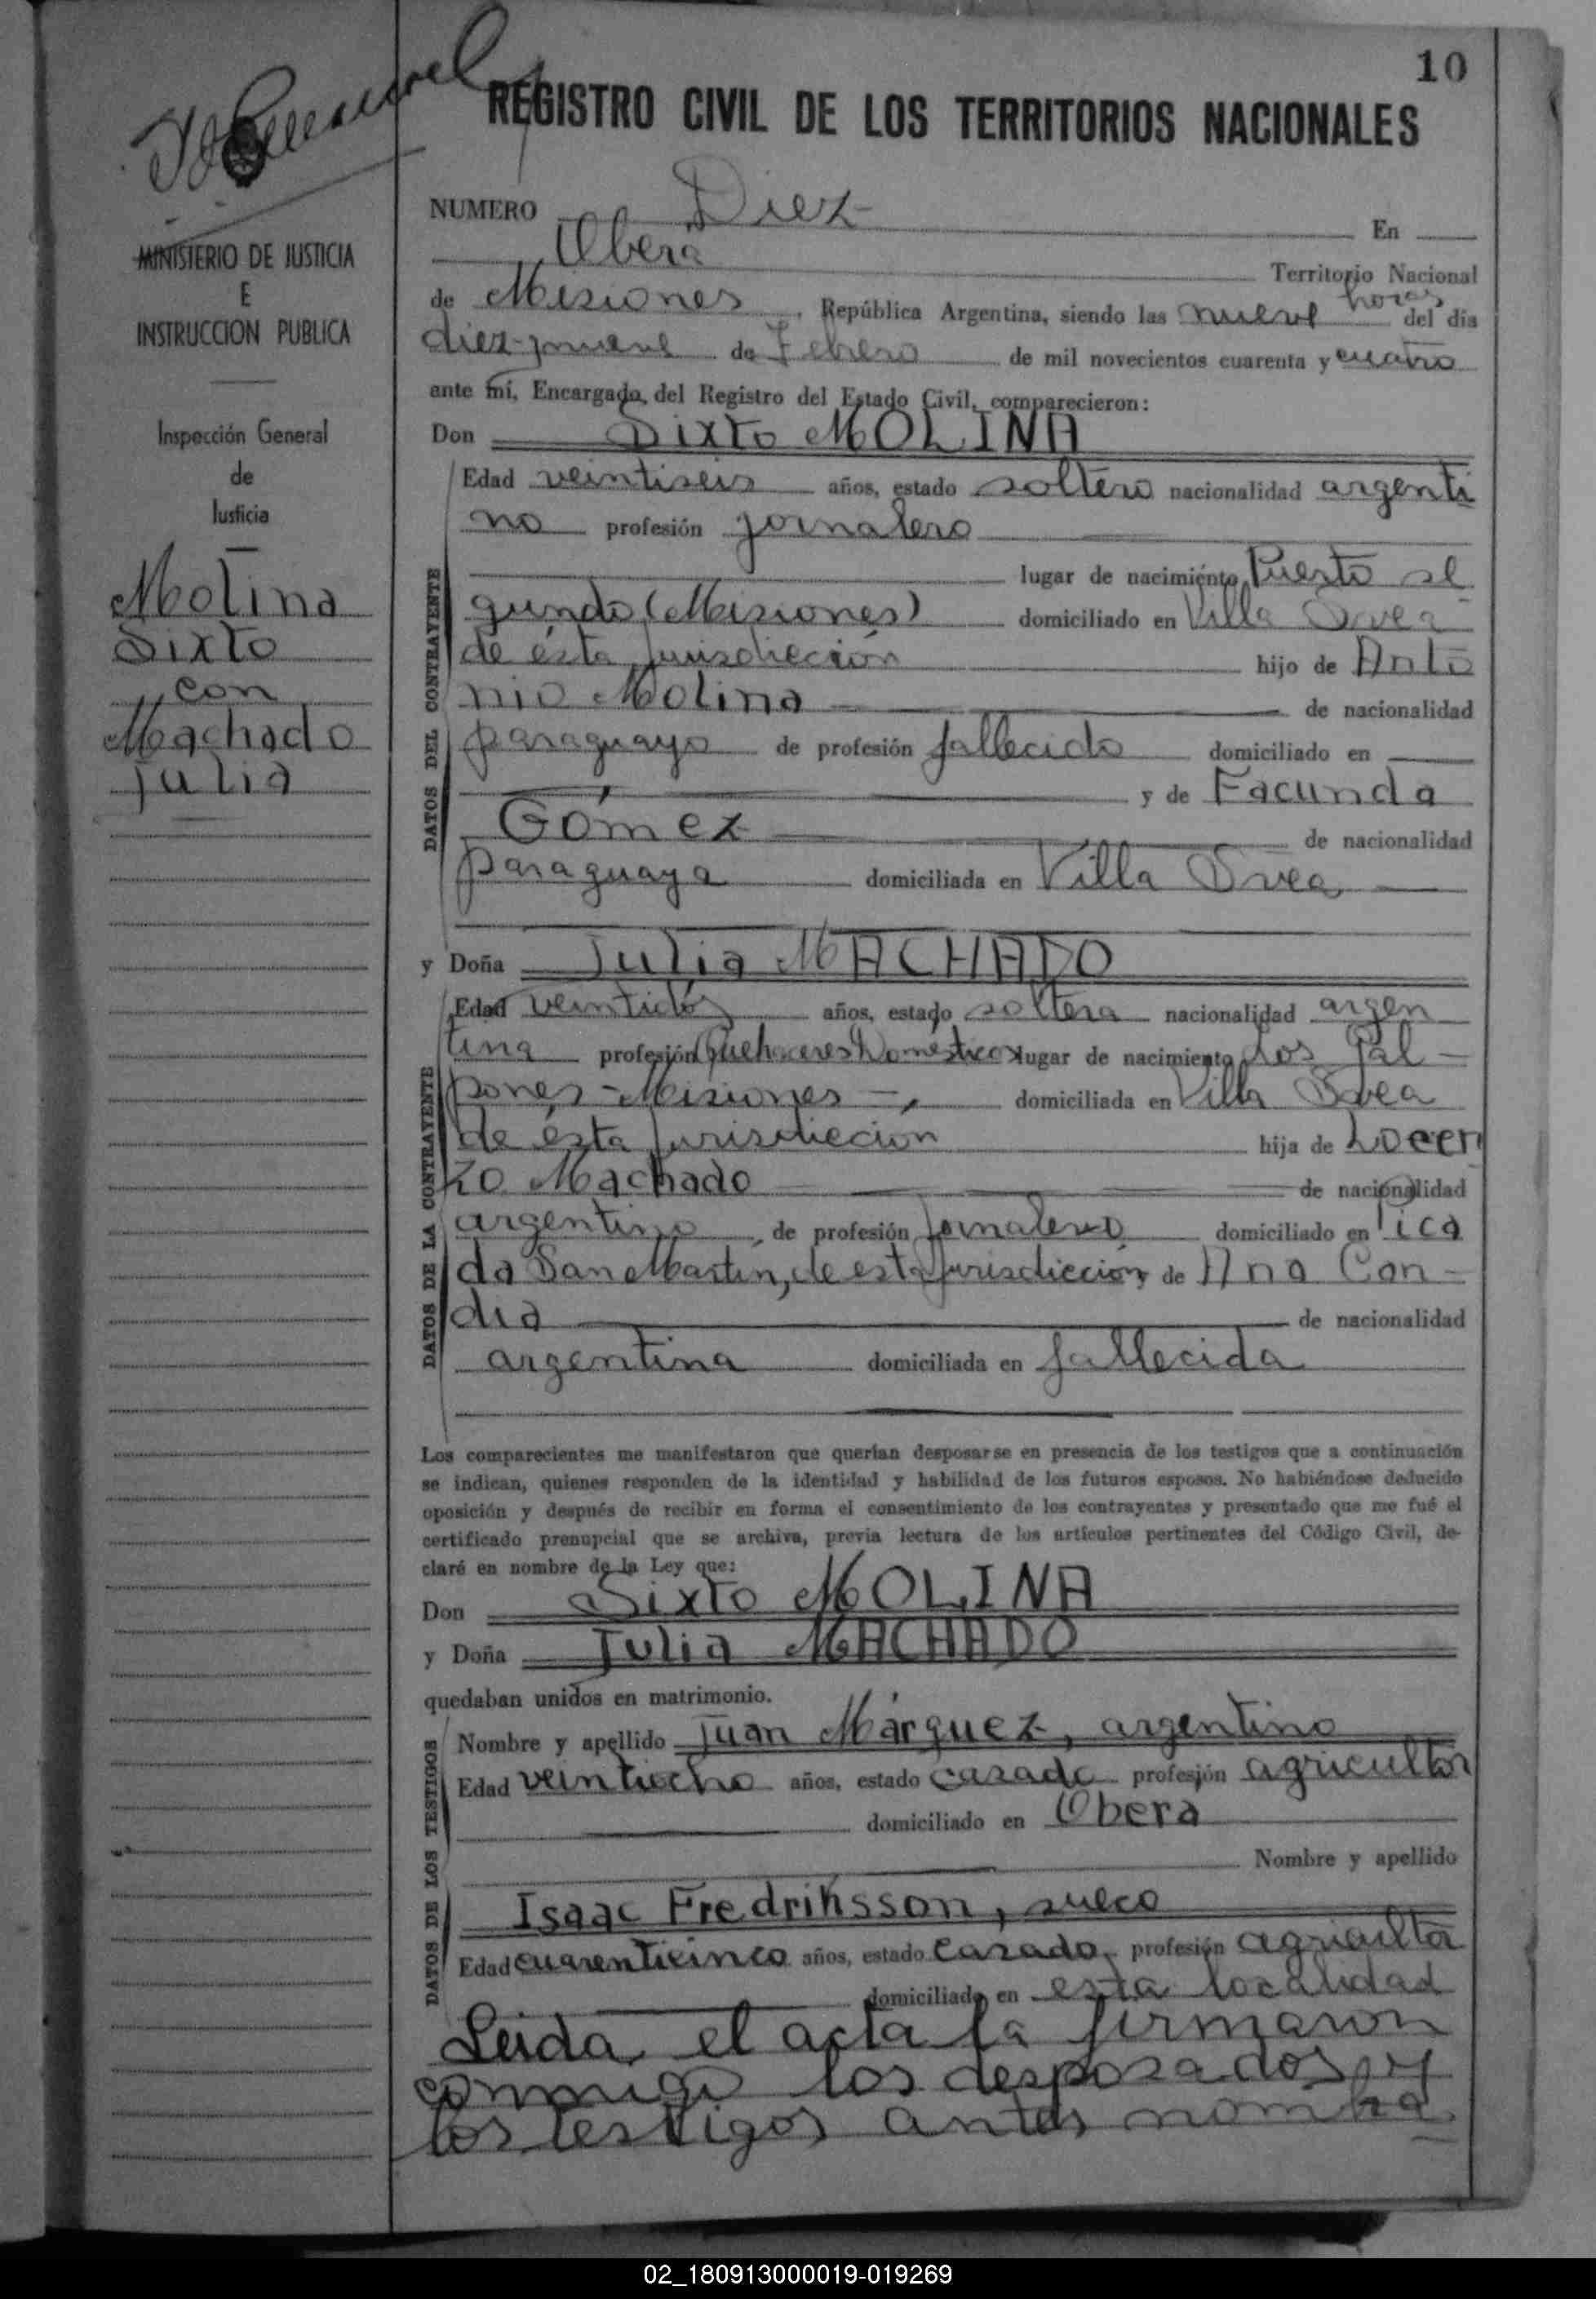 10
REGISTRO CIVIL DE LOS TERRITORIOS NACIONALES
MINISTERIO DE JUSTICIA
E
INSTRUCCION PUBLICA
Inspección General
de
Justicia
Molina
Sixto
con
Machado
Julia
NUMERO Diez En
Oberá Territorio Nacional
de Misiones, República Argentina, siendo las nueve horas del día
diez y nueve de Febrero de mil novecientos cuarenta y cuatro
ante mí, Encargado del Registro del Estado Civil, comparecieron:
Don Sixto MOLINA
DATOS DEL CONTRAYENTE
Edad veintiseis años, estado soltero nacionalidad argenti
no profesión jornalero
lugar de nacimiento Puerto se
gundo (Misiones) domiciliado en Villa Svea
de ésta jurisdiccion hijo de Anto
nio Molina de nacionalidad
paraguayo de profesión fallecido domiciliado en
y de Facunda
Gómez de nacionalidad
paraguaya domiciliada en Villa Svea
y Doña Julia MACHADO
DATOS DE LA CONTRAYENTE
Edad veintidós años, estado soltera nacionalidad argen
tina profesión Quehaceres Domesticos lugar de nacimiento Los Gal-
pones - Misiones -, domiciliada en Villa Svea
de ésta jurisdiccion hija de Loren
zo Machado de nacionalidad
argentino, de profesión jornalero domiciliado en Pica
da San Martin, de esta jurisdicción y de Ana Can-
dia de nacionalidad
argentina domiciliada en fallecida
Los comparecientes me manifestaron que querían desposarse en presencia de los testigos que a continuación
se indican, quienes responden de la identidad y habilidad de los futuros esposos. No habiéndose deducido
oposición y después de recibir en forma el consentimiento de los contrayentes y presentado que me fué el
certificado prenupcial que se archiva, previa lectura de los artículos pertinentes del Código Civil, de-
claré en nombre de la Ley que:
Don Sixto MOLINA
y Doña Julia MACHADO
quedaban unidos en matrimonio.
DATOS DE LOS TESTIGOS
Nombre y apellido Juan Márquez, argentino
Edad veintiocho años, estado casado profesión agricultor
domiciliado en Oberá
Nombre y apellido
Isaac Fredriksson, sueco
Edad cuarenticinco años, estado casado, profesión agricultor
domiciliado en esta localidad
Leida el acta la firmaron
conmigo los desposados y
los testigos antes nombra
02_180913000019-019269